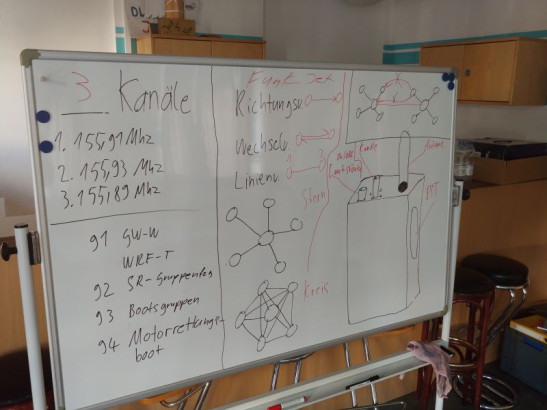 3 Kanäle
1. 155,91 Mhz
2. 155,93 Mhz
3. 155,89 Mhz
91 GW-W
WRF-T
92 SR-Gruppen
93 Bootsgruppen
94 Motorrettungs-
boot
Funk
Richtungsv
Wechselv
Linienv
1 3
Stern
Kreis
Kanäle
Antenne
PTT